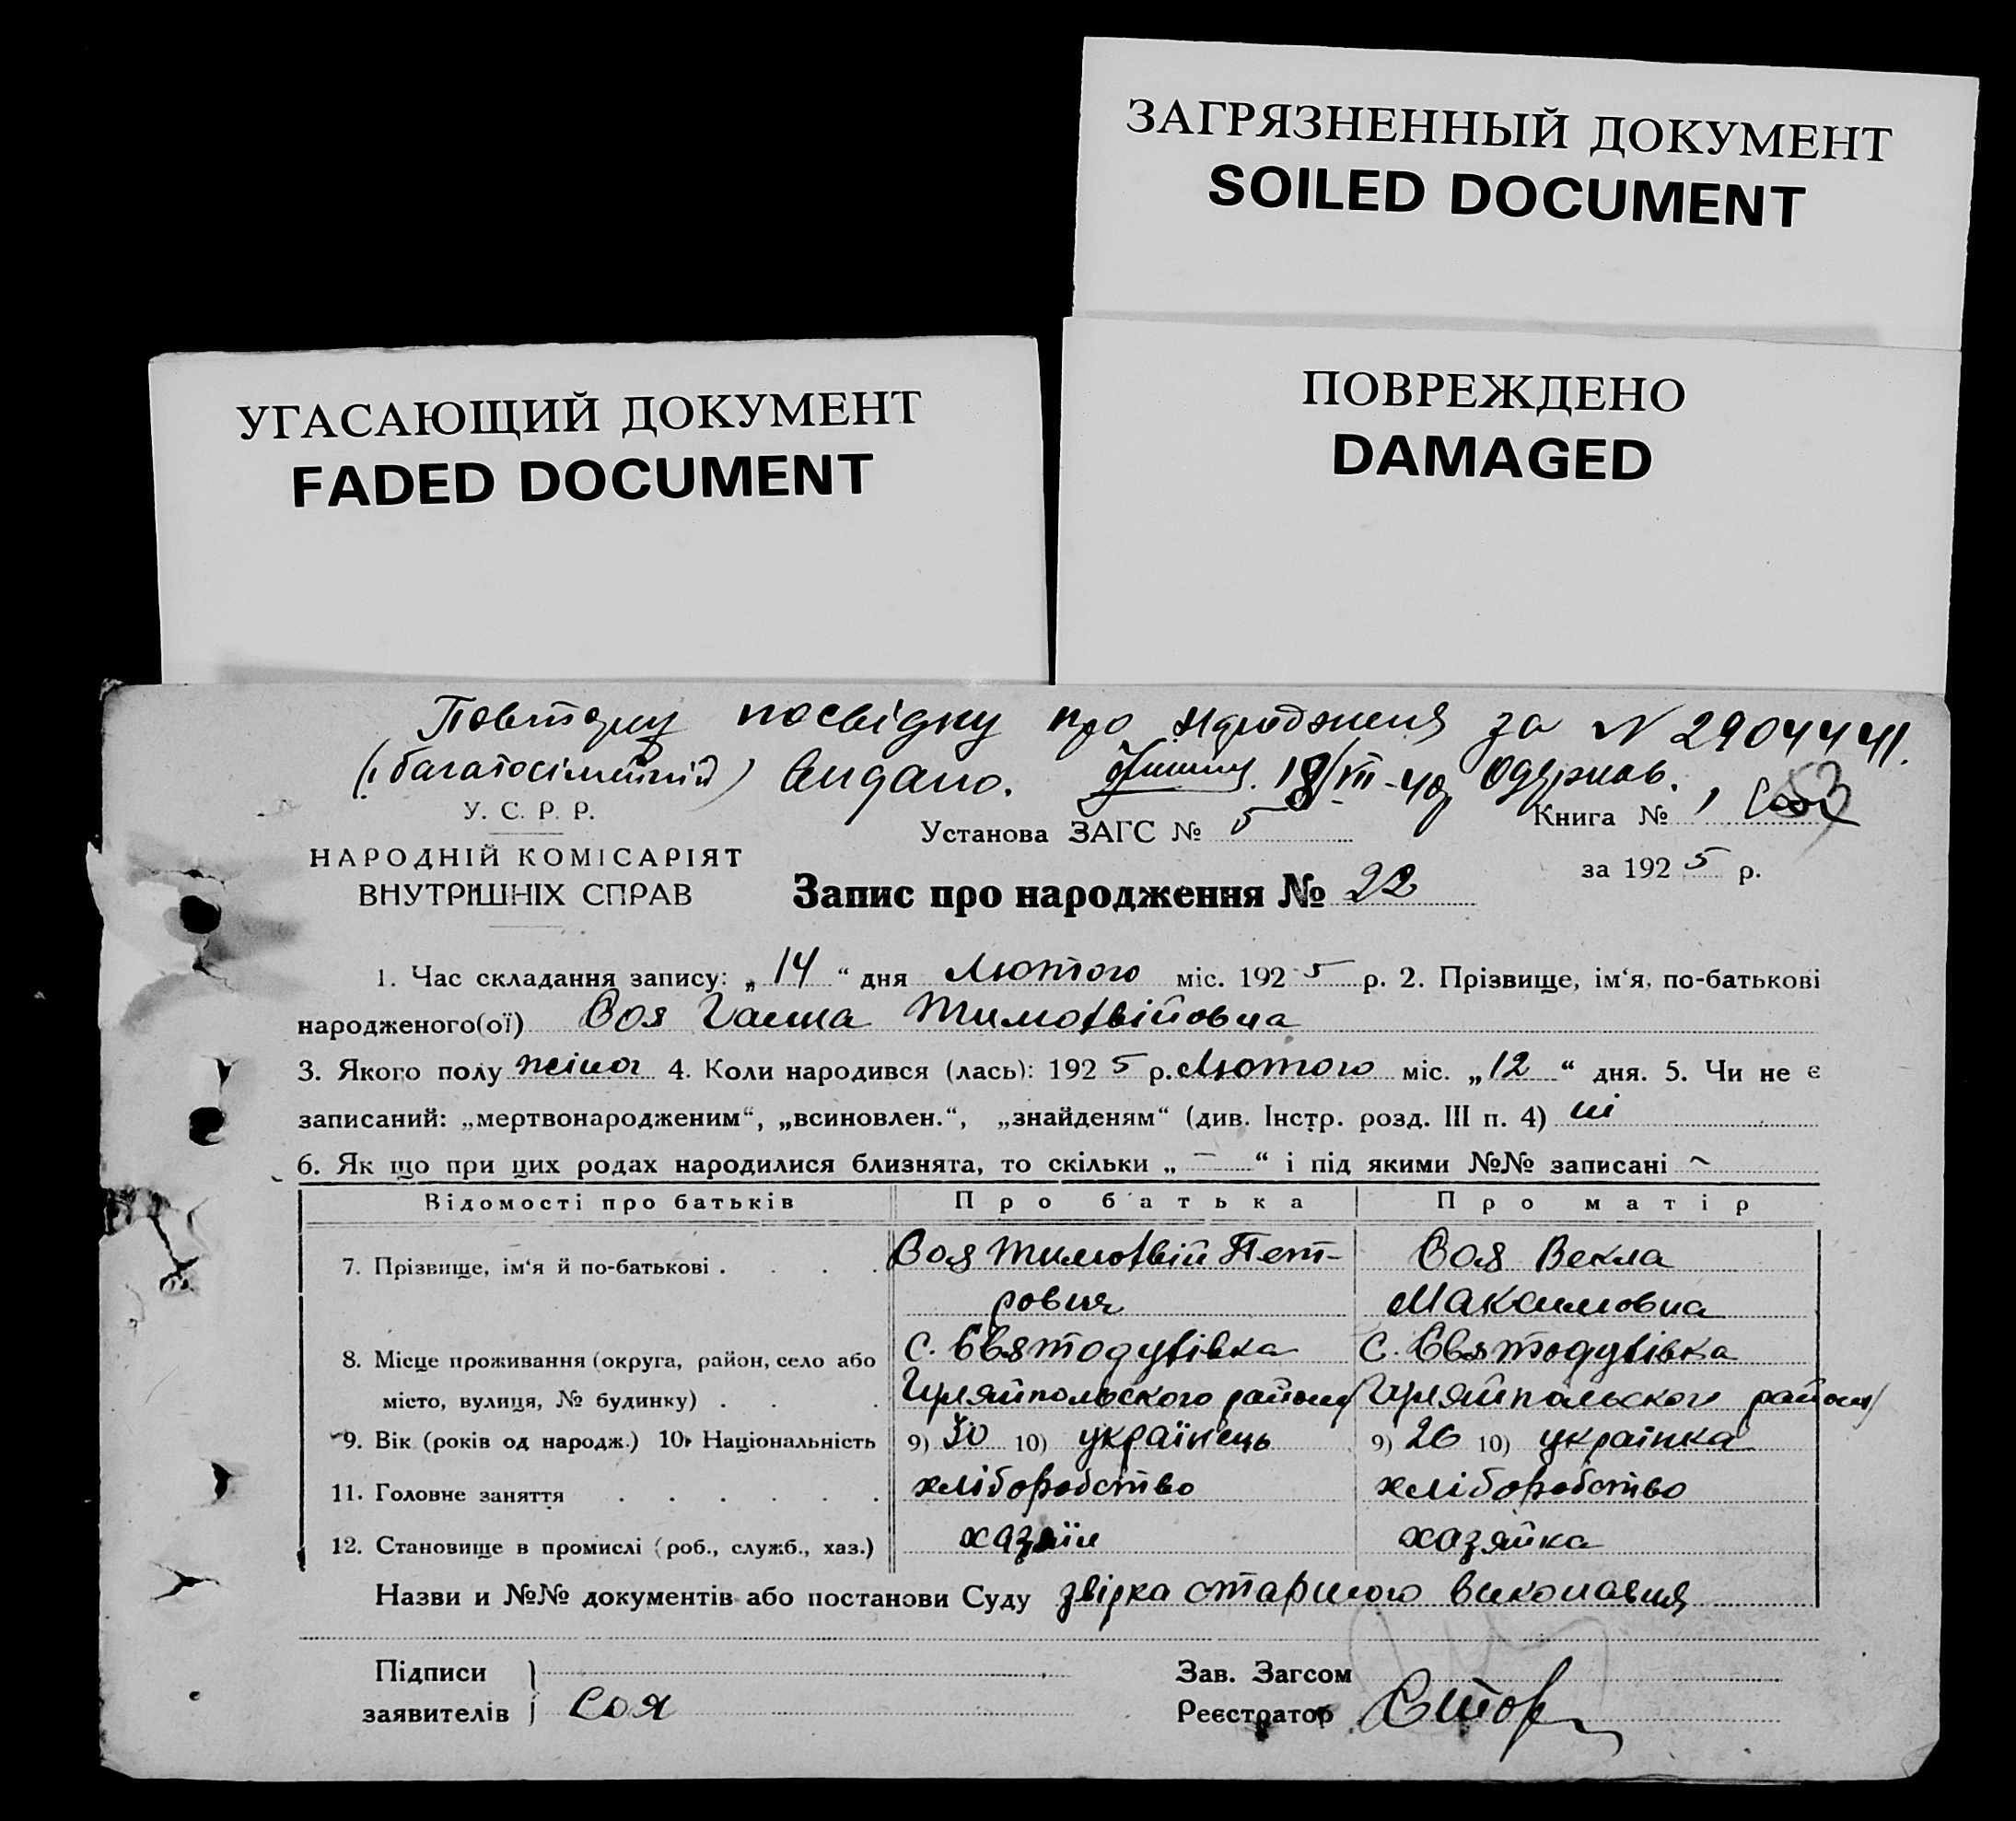 ЗАГРЯЗНЕННЫЙ ДОКУМЕНТ
SOILED DOCUMENT
УГАСАЮЩИЙ ДОКУМЕНТ
FADED DOCUMENT
ПОВРЕЖДЕНО
DAMAGED
Повторну посвідку про народження за № 2904441.
(багатосімейній) видано. 18/VII-40р Одержав.
У. С. Р. Р.
НАРОДНІЙ КОМІСАРІЯТ
ВНУТРІШНІХ СПРАВ
Установа ЗАГС № 5
Книга № 1 53
за 1925 р.
Запис про народження № 22
1. Час складання запису: „14“ дня Лютого міс. 1925 р. 2. Прізвище, ім‘я, по-батькові
народженого(ої) Соя Ганна Тимофвійовна
3. Якого полу жіноч 4. Коли народився (лась): 1925 р. Лютого міс. „12“ дня. 5. Чи не є
записаний: „мертвонародженим“, „всиновлен.“, „знайденям“ (див. Інстр. розд. III п. 4) ні
6. Як що при цих родах народилися близнята, то скільки „ — “ і під якими №№ записані ~
Відомості про батьків Про батька Про матір
7. Прізвище, ім‘я й по-батькові . . . . Соя Тимофвій Пет- Соя Векла
рович Максимовна
8. Місце проживання (округа, район, село або с. Святодухівка с. Святодухівка
місто, вулиця, № будинку) . . . Гуляйпольского району Гуляйпольског району
9. Вік (років од народж.) 10. Національність 9) 30 10) українець 9) 26 10) українка
11. Головне заняття . . . . . . хліборобство хліборобство
12. Становище в промислі (роб., служб., хаз.) хазяїн хазяйка
Назви и №№ документів або постанови Суду звірка старшого виконавця
Підписи
заявителів Соя
Зав. Загсом
Реєстратор